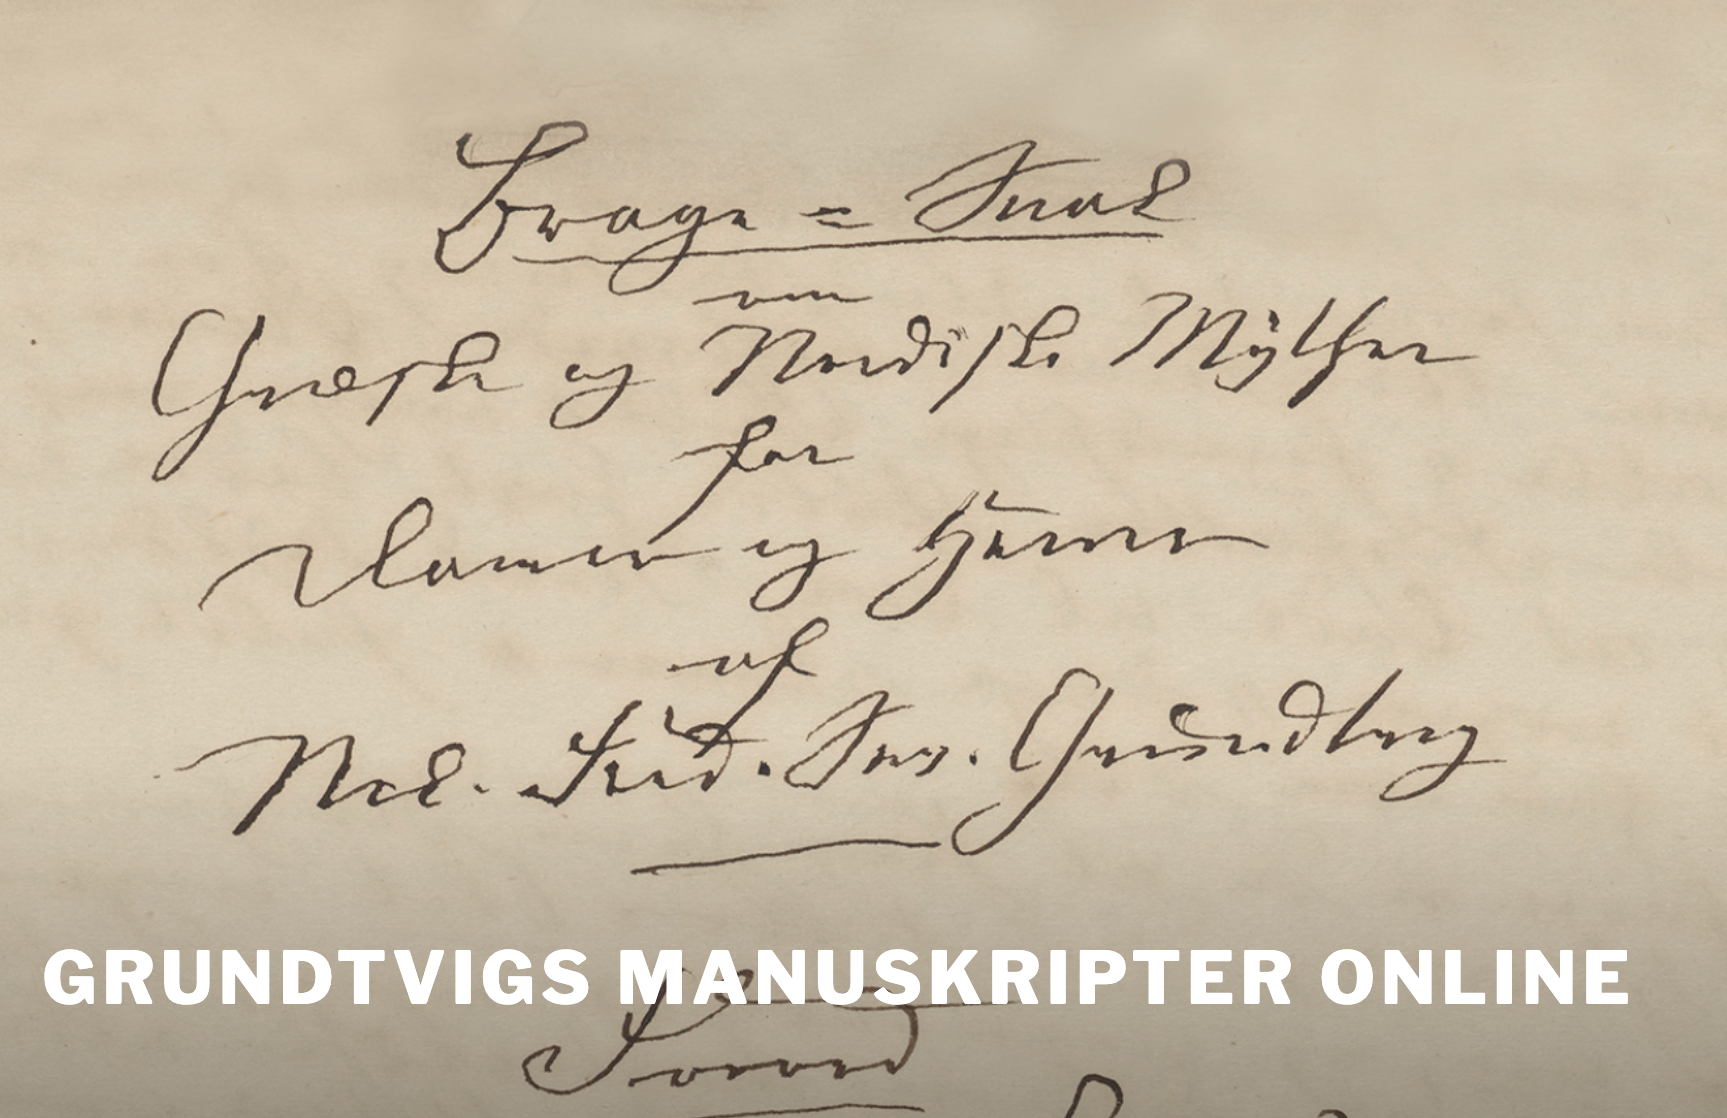 Brage = Snak
om
Græske og Nordiske Myther
for
Damer og Herrer
af
Nik. Fred. Sev. Grundtvig
GRUNDTVIGS MANUSKRIPTER ONLINE
Forord